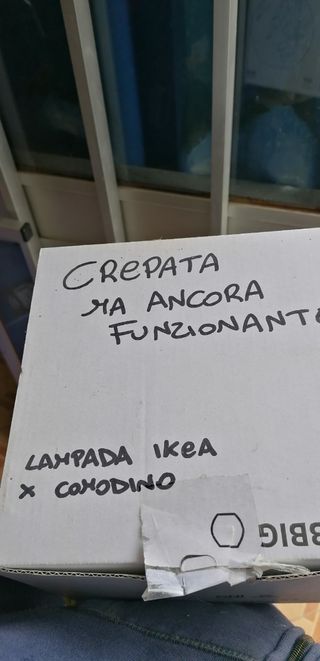 CREPATA
MA ANCORA
FUNZIONANTE
LAMPADA IKEA
X COMODINO